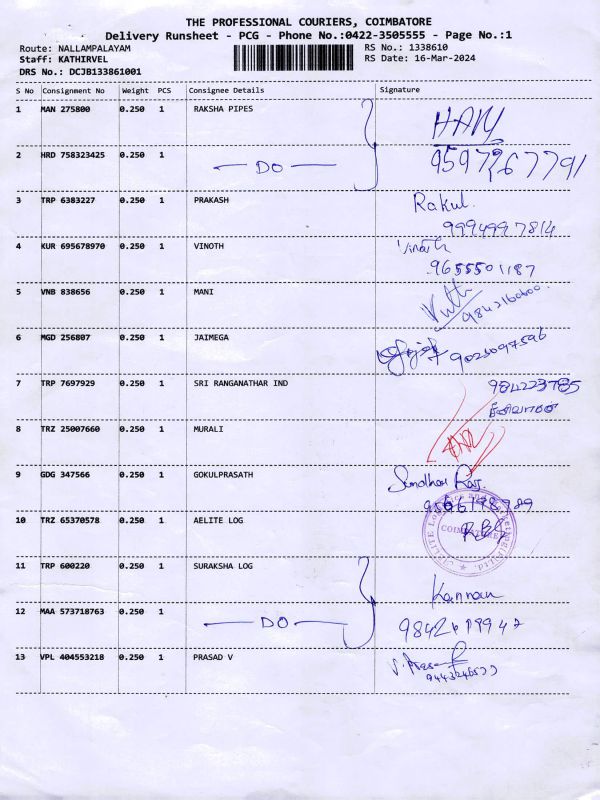 THE PROFESSIONAL COURIERS, COIMBATORE
Delivery Runsheet - PCG - Phone No.:0422-3505555 - Page No.:1
Route: NALLAMPALAYAM RS No.: 1338610
Staff: KATHIRVEL RS Date: 16-Mar-2024
DRS No.: DCJB133861001
S No Consignment No Weight PCS Consignee Details Signature
1 MAN 275800 0.250 1 RAKSHA PIPES HARI
2 HRD 758323425 0.250 1 DO 9597267791
3 TRP 6383227 0.250 1 PRAKASH Rakul.
9994997814
4 KUR 695678970 0.250 1 VINOTH Vinoth
9655501187
5 VNB 838656 0.250 1 MANI
6 MGD 256807 0.250 1 JAIMEGA
7 TRP 7697929 0.250 1 SRI RANGANATHAR IND
8 TRZ 25007660 0.250 1 MURALI
9 GDG 347566 0.250 1 GOKULPRASATH Sundhar Raj.
10 TRZ 65370578 0.250 1 AELITE LOG
COIMBATORE
11 TRP 600220 0.250 1 SURAKSHA LOG Kannan
12 MAA 573718763 0.250 1 DO
13 VPL 404553218 0.250 1 PRASAD V